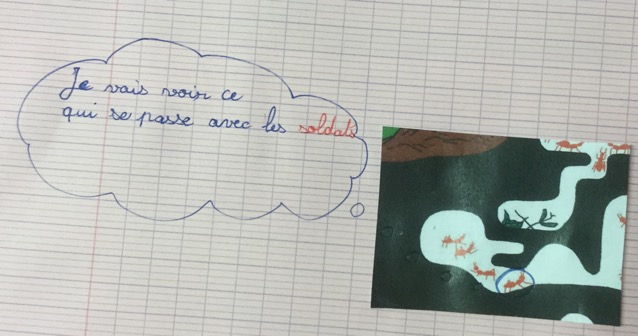 Je vais voir ce
qui se passe avec les soldats